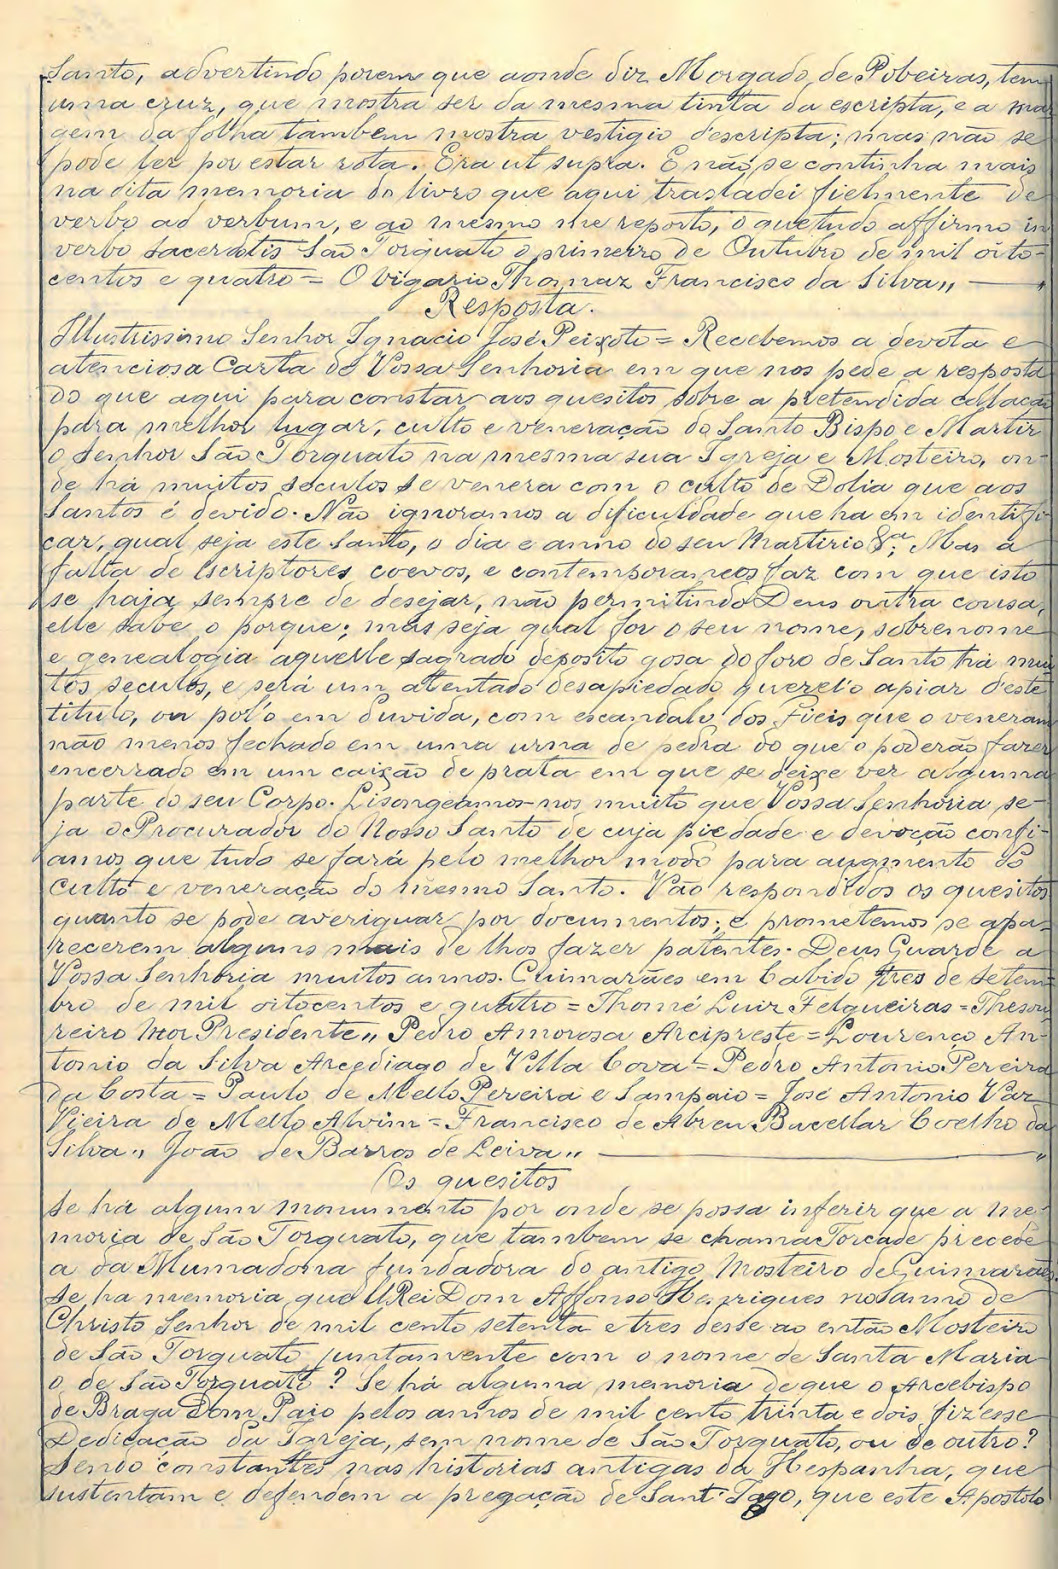 Santo, advertindo porem que aonde diz Morgado de Pobeiras, tem
uma cruz, que mostra ser da mesma tinta da escripta, e a mar
gem da folha tambem mostra vestigio d'escripta; mas não se
pode ler por estar rota. Era ut supra. E não se continha mais
na dita memoria do livro que aqui trasladei fielmente de
verbo ad verbum, e ao mesmo me reporto, o que tudo affirmo in
verbo sacerdotis São Torquato o primeiro de Outubro de mil oito-
centos e quatro = O vigario Thomaz Francisco da Silva,, —
Resposta.
Illustrissimo Senhor Ignacio José Peixoto = Recebemos a devota e
atenciosa Carta de Vossa Senhoria em que nos pede a resposta
do que aqui para constar aos quesitos sobre a pretendida collacão
para melhor lugar, culto e veneração do Santo Bispo e Martir
o Senhor São Torquato na mesma sua Igreja e Mosteiro, on-
de há muitos seculos se venera com o culto de Dolia que aos
Santos é devido. Não ignoramos a dificuldade que ha em identifi
car, qual seja este Santo, o dia e anno do seu Martirio &ª. Mas a
falta de Escriptores coevos, e contemporaneos faz com que isto
se haja sempre de desejar, não permitindo Deus outra cousa,
elle sabe o porque; mas seja qual for o seu nome, sobrenome
e genealogia aquelle sagrado deposito gosa do foro de Santo há mui
tos seculos, e será um atentado desapiedado querel'o apiar d'este
titulo, ou pol'o em duvida, com escandalo dos Fieis que o veneram
não menos fechado em uma urna de pedra do que o poderão fazer
encerrado em um caixão de prata em que se deixe ver alguma
parte do seu Corpo. Lisongeamos-nos muito que Vossa Senhoria se-
ja o Procurador do Nosso Santo de cuja piedade e devoção confi-
amos que tudo se fará pelo melhor modo para augmento do
culto e veneração do mesmo Santo. Vão respondidos os quesitos
quanto se pode averiguar por documentos; e prometemos se apa-
recerem alguns mais de lhos fazer patentes. Deus Guarde a
Vossa Senhoria muitos annos. Guimarães em Cabido tres de setem-
bro de mil oitocentos e quatro = Thomé Luiz Felgueiras = Thesou
reiro Mor Presidente,, Pedro Amorosa Arcipreste = Lourenço An-
tonio da Silva Arcediago de Villa Cova = Pedro Antonio Pereira
da Costa = Paulo de Mello Pereira e Sampaio = José Antonio Vaz
Vieira de Mello Alvim = Francisco de Abreu Bacellar Coelho da
Silva,, João de Barros de Leiva,, —
Os quesitos
Se há algum monumento por onde se possa inferir que a me-
moria de São Torquato, que tambem se chama Torcade precede
a da Mumadona fundadora do antigo Mosteiro de Guimarães.
Se ha memoria que ElRei Dom Affonso Henriques no anno de
Christo Senhor de mil cento setenta e tres desse ao então Mosteiro
de São Torquato juntamente com o nome de Santa Maria
o de São Torquato? Se há alguma memoria de que o Arcebispo
de Braga Dom Paio pelos annos de mil cento trinta e dois fizesse
Dedicação da Igreja, sem nome de São Torquato, ou de outro?
Sendo constantes nas historias antigas da Hespanha, que
sustentam e defendem a pregação de Sant'Iago, que este Apostolo